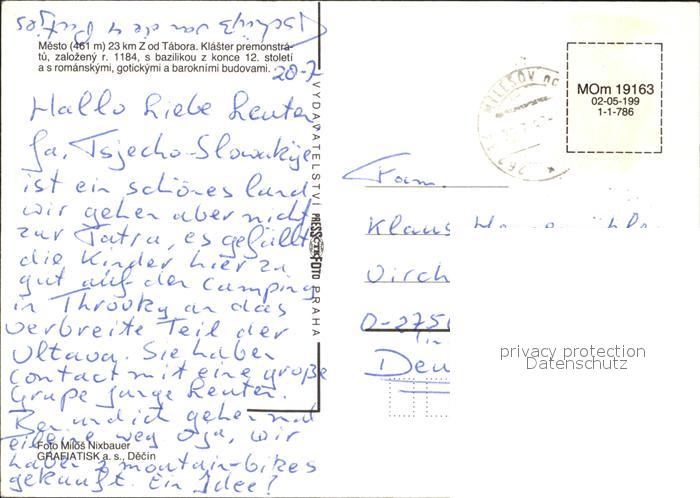 Tschüß von die 4 Puttjes
Město (461 m) 23 km Z od Tábora. Klášter premonstrá-
tů, založený r. 1184, s bazilikou z konce 12. století
a s románskými, gotickými a barokními budovami.
20-7
Hallo liebe Leuten
Ja, Tsjecho-Slowakije
ist ein schönes land
wir gehen aber nicht
zur Tatra, es gefällt
die Kinder hier zu
gut auf der camping
in Throvky an das
verbreite Teil der
Vltava. Sie haben
contact mit eine große
Grupe junge Leuten.
Ben und ich gehen mal
eine weg oja, wir
haben 2 mountain-bikes
gekauft. Ein Idee!
Foto Miloš Nixbauer
GRAFIATISK a. s., Děčín
VYDAVATELSTVÍ PRESSFOTO PRAHA
MILEŠOV
262
MOm 19163
02-05-199
1-1-786
Fam.
Klaus
Virch
D-275
Deu
privacy protection
Datenschutz